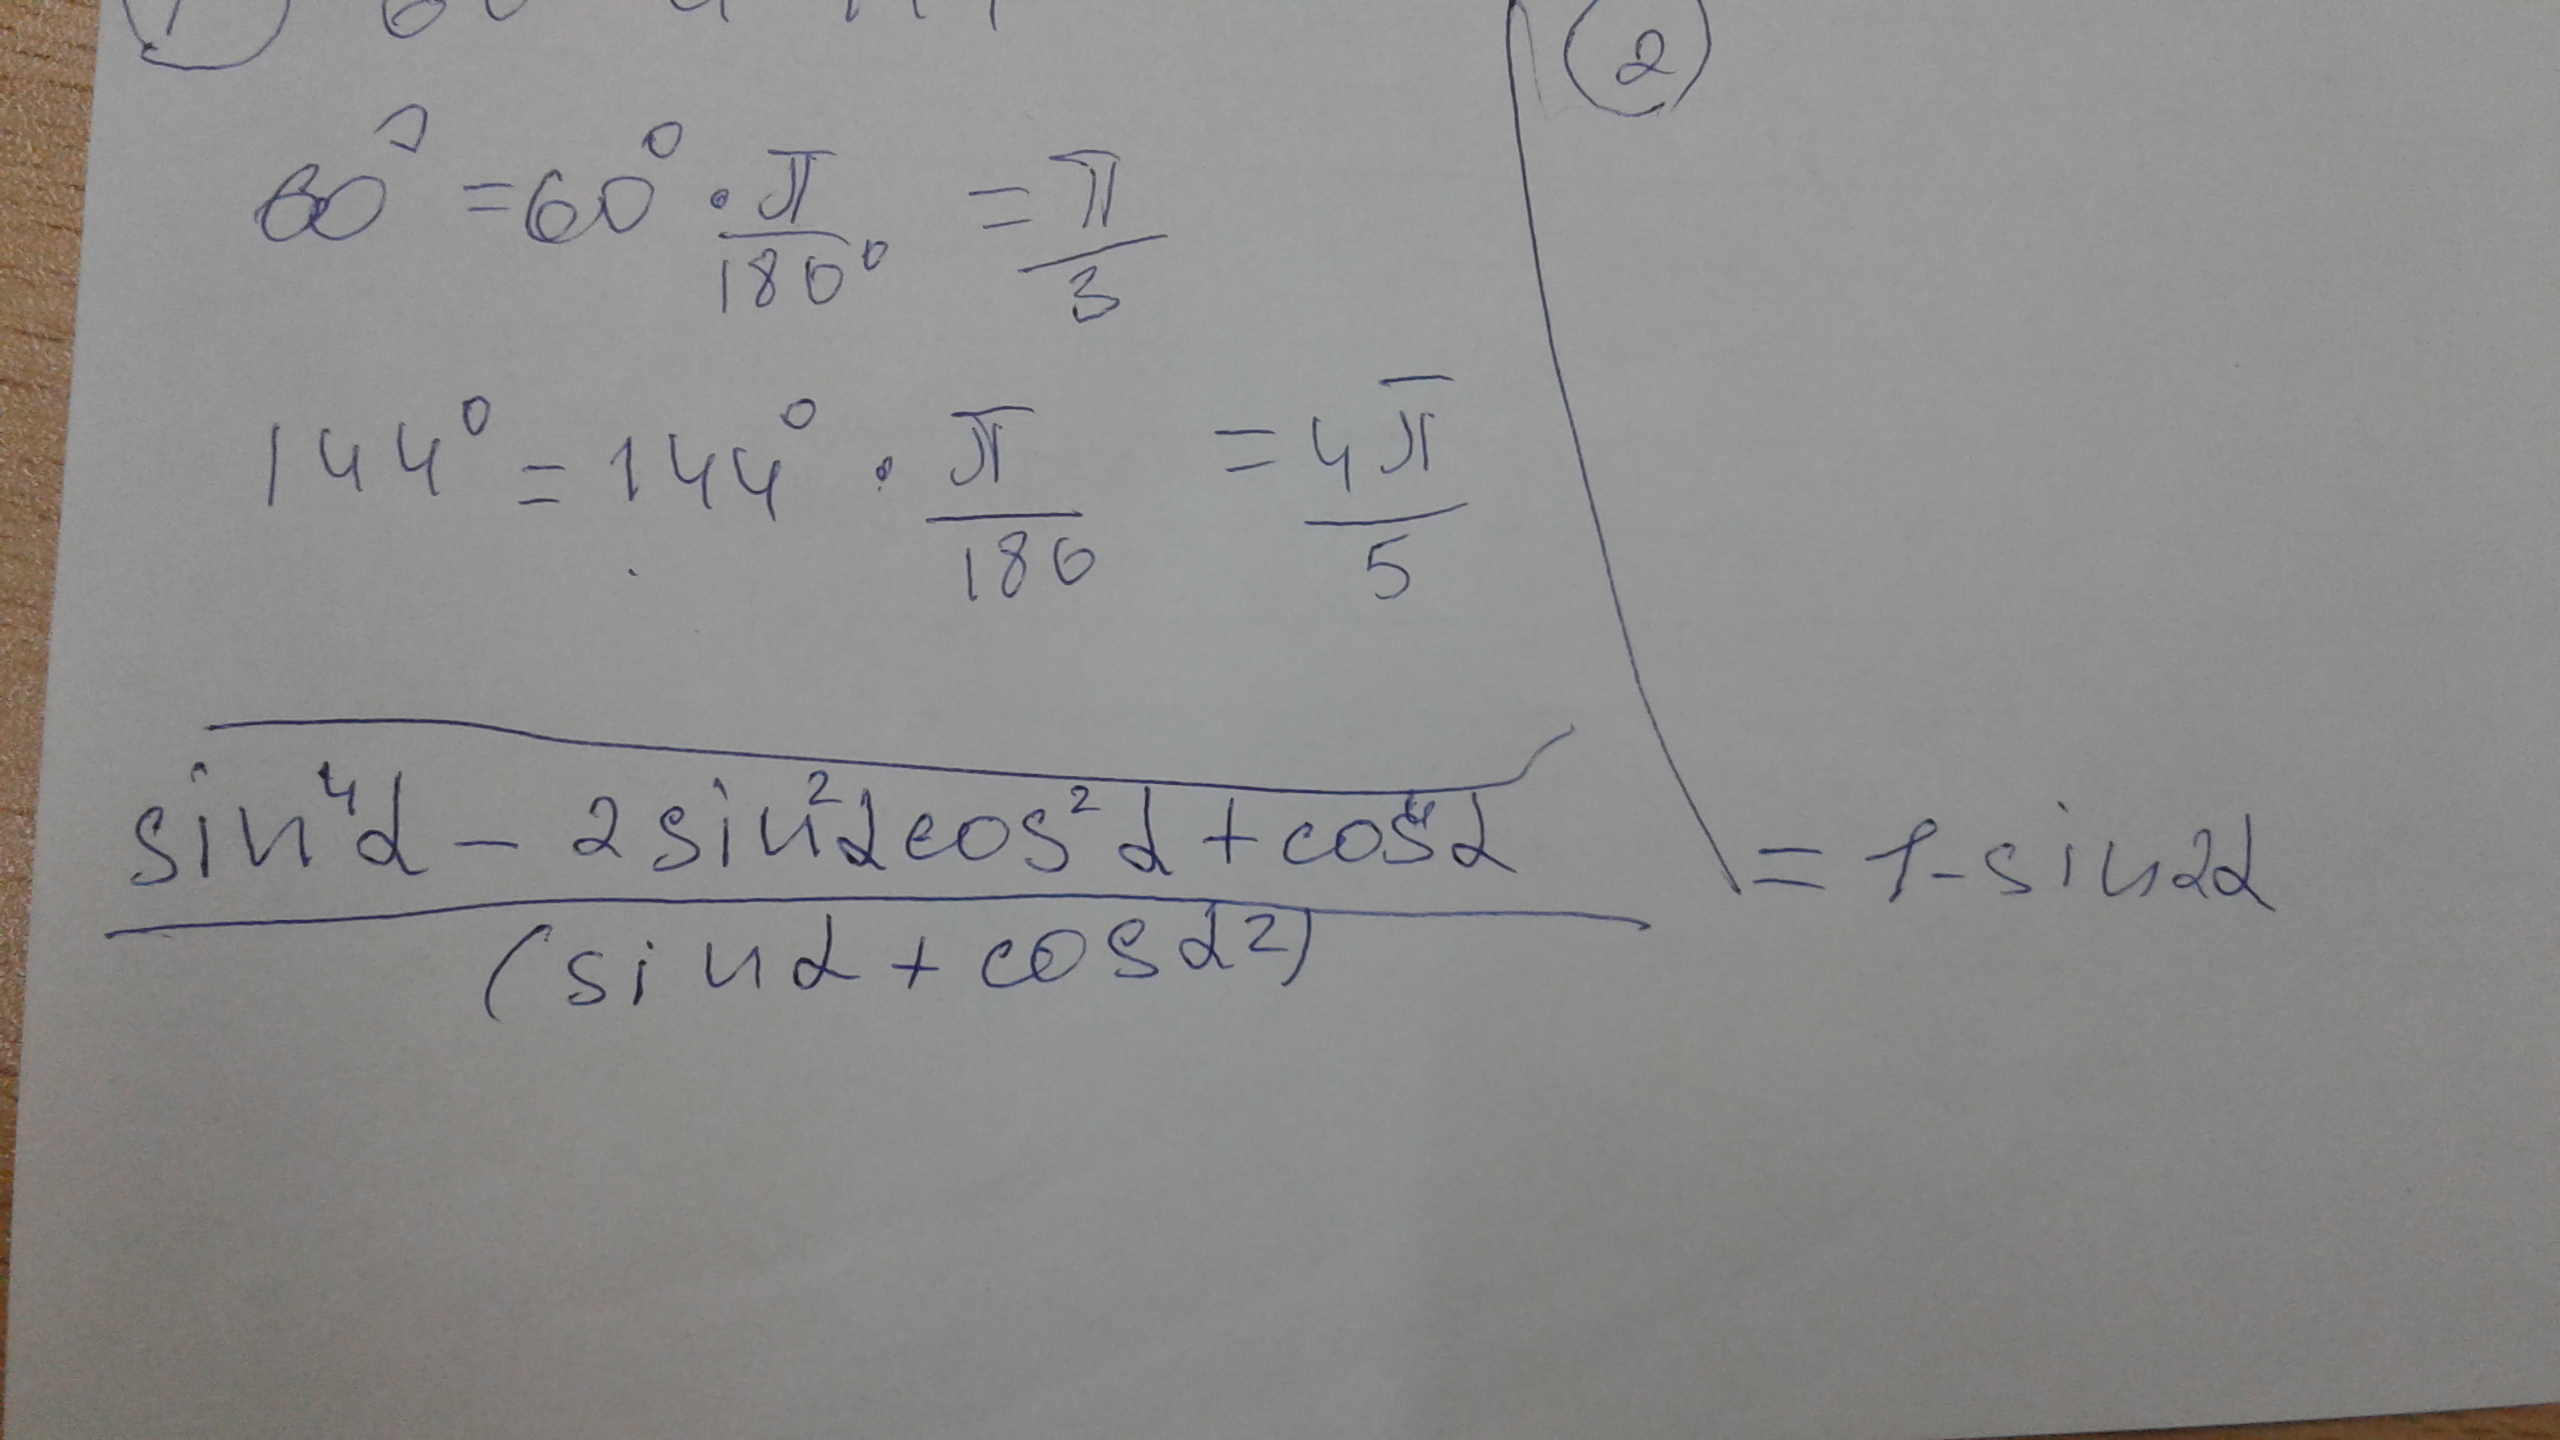 ①
②
60° = 60° · π/180° = π/3
144° = 144° · π/180 = 4π/5
sin⁴α − 2sin²αcos²α + cos⁴α
(sinα + cosα²)
= 1 - sin2α